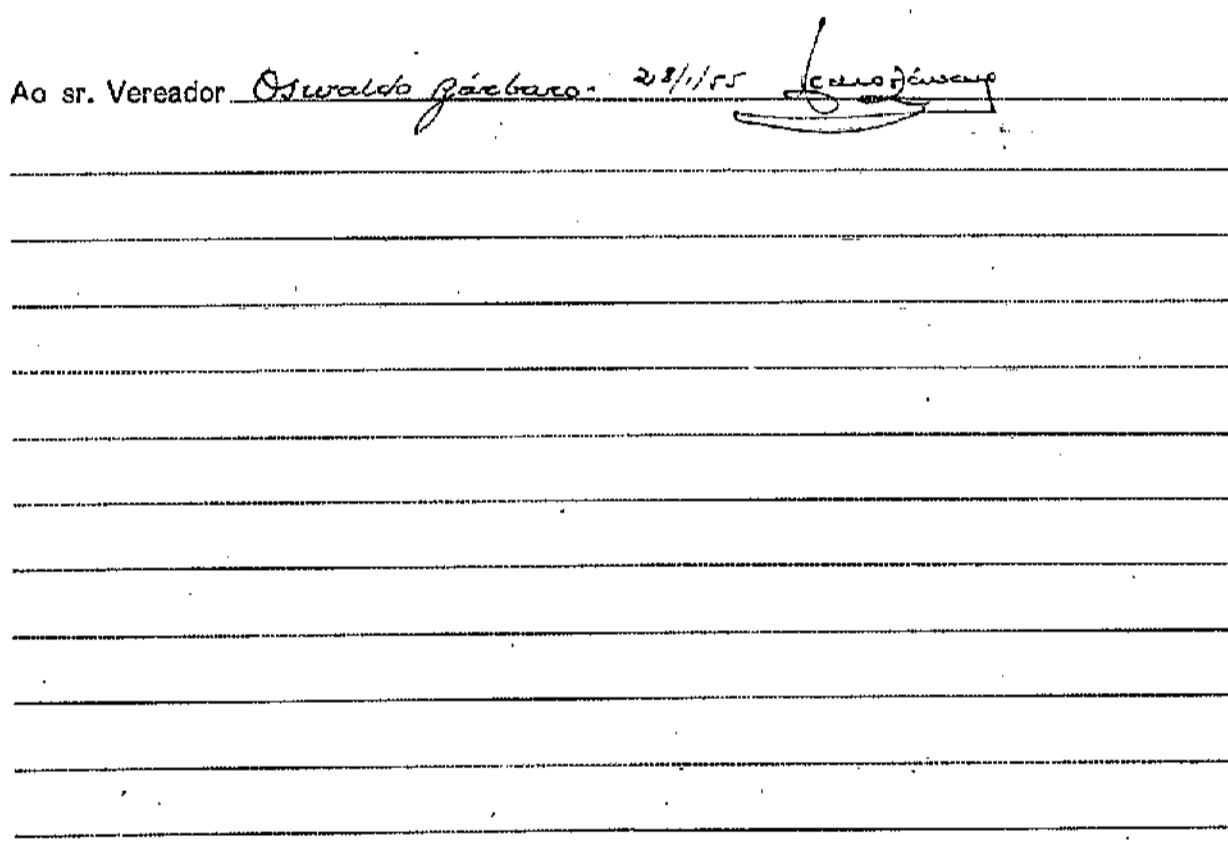 Ao sr. Vereador Oswaldo Bárbaro. 28/1/55